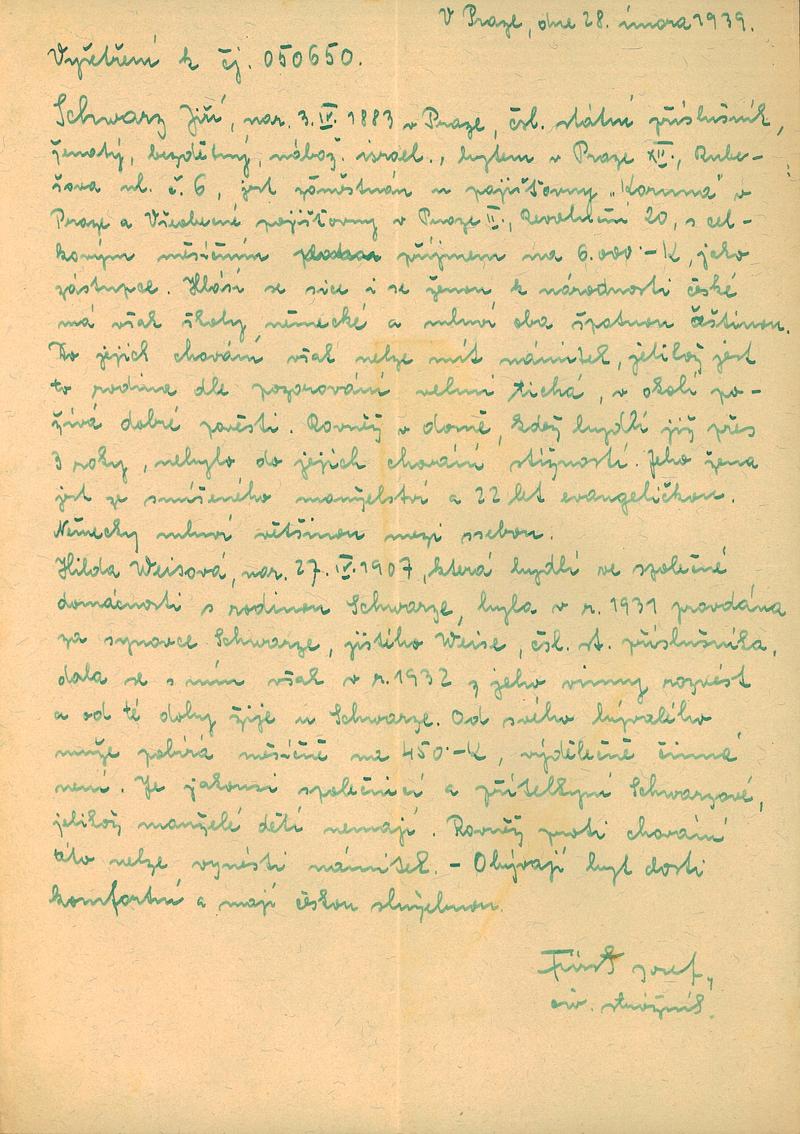 V Praze, dne 28. února 1939.
Vyšetření k čj. 050650.
Schwarz Jiří, nar. 3.IV. 1883 v Praze, čsl. státní příslušník,
ženatý, bezdětný, nábož. israel., bytem v Praze XII., Rube-
šova ul. č. 6, jest zaměstnán u pojišťovny „Koruna" v
Praze a Všeobecné pojišťovny v Praze II., Revoluční 20, s cel-
kovým měsíčním příjmem na 6.000·-K, jako
zástupce. Hlásí se sice i se ženou k národnosti české
má však školy německé a mluví oba špatnou češtinou.
Do jejich chování však nelze mít námitek, jelikož jest
to rodina dle pozorování velmi tichá, v okolí po-
žívá dobré pověsti. Rovněž v domě, kdež bydlí již přes
3 roky, nebylo do jejich chování stížností. Jeho žena
jest ze smíšeného manželství a 22 let evangeličkou.
Německy mluví většinou mezi ssebou.
Hilda Weisová, nar. 27.IV.1907, která bydlí ve společné
domácnosti s rodinou Schwarze, byla v r. 1931 provdána
za synovce Schwarze, jistého Weise, čsl. st. příslušníka,
dala se s ním však v r. 1932 z jeho vinny rozvést
a od té doby žije u Schwarze. Od svého bývalého
muže pobírá měsíčně na 450·-K, výdělečně činná
není. Je jakousi společnicí a přítelkyní Schwarzové,
jelikož manželé dětí nemají. Rovněž proti chování
této nelze vynésti námitek. - Obývají byt dosti
komfortní a mají českou služebnou.
Fürst Josef,
strážník.